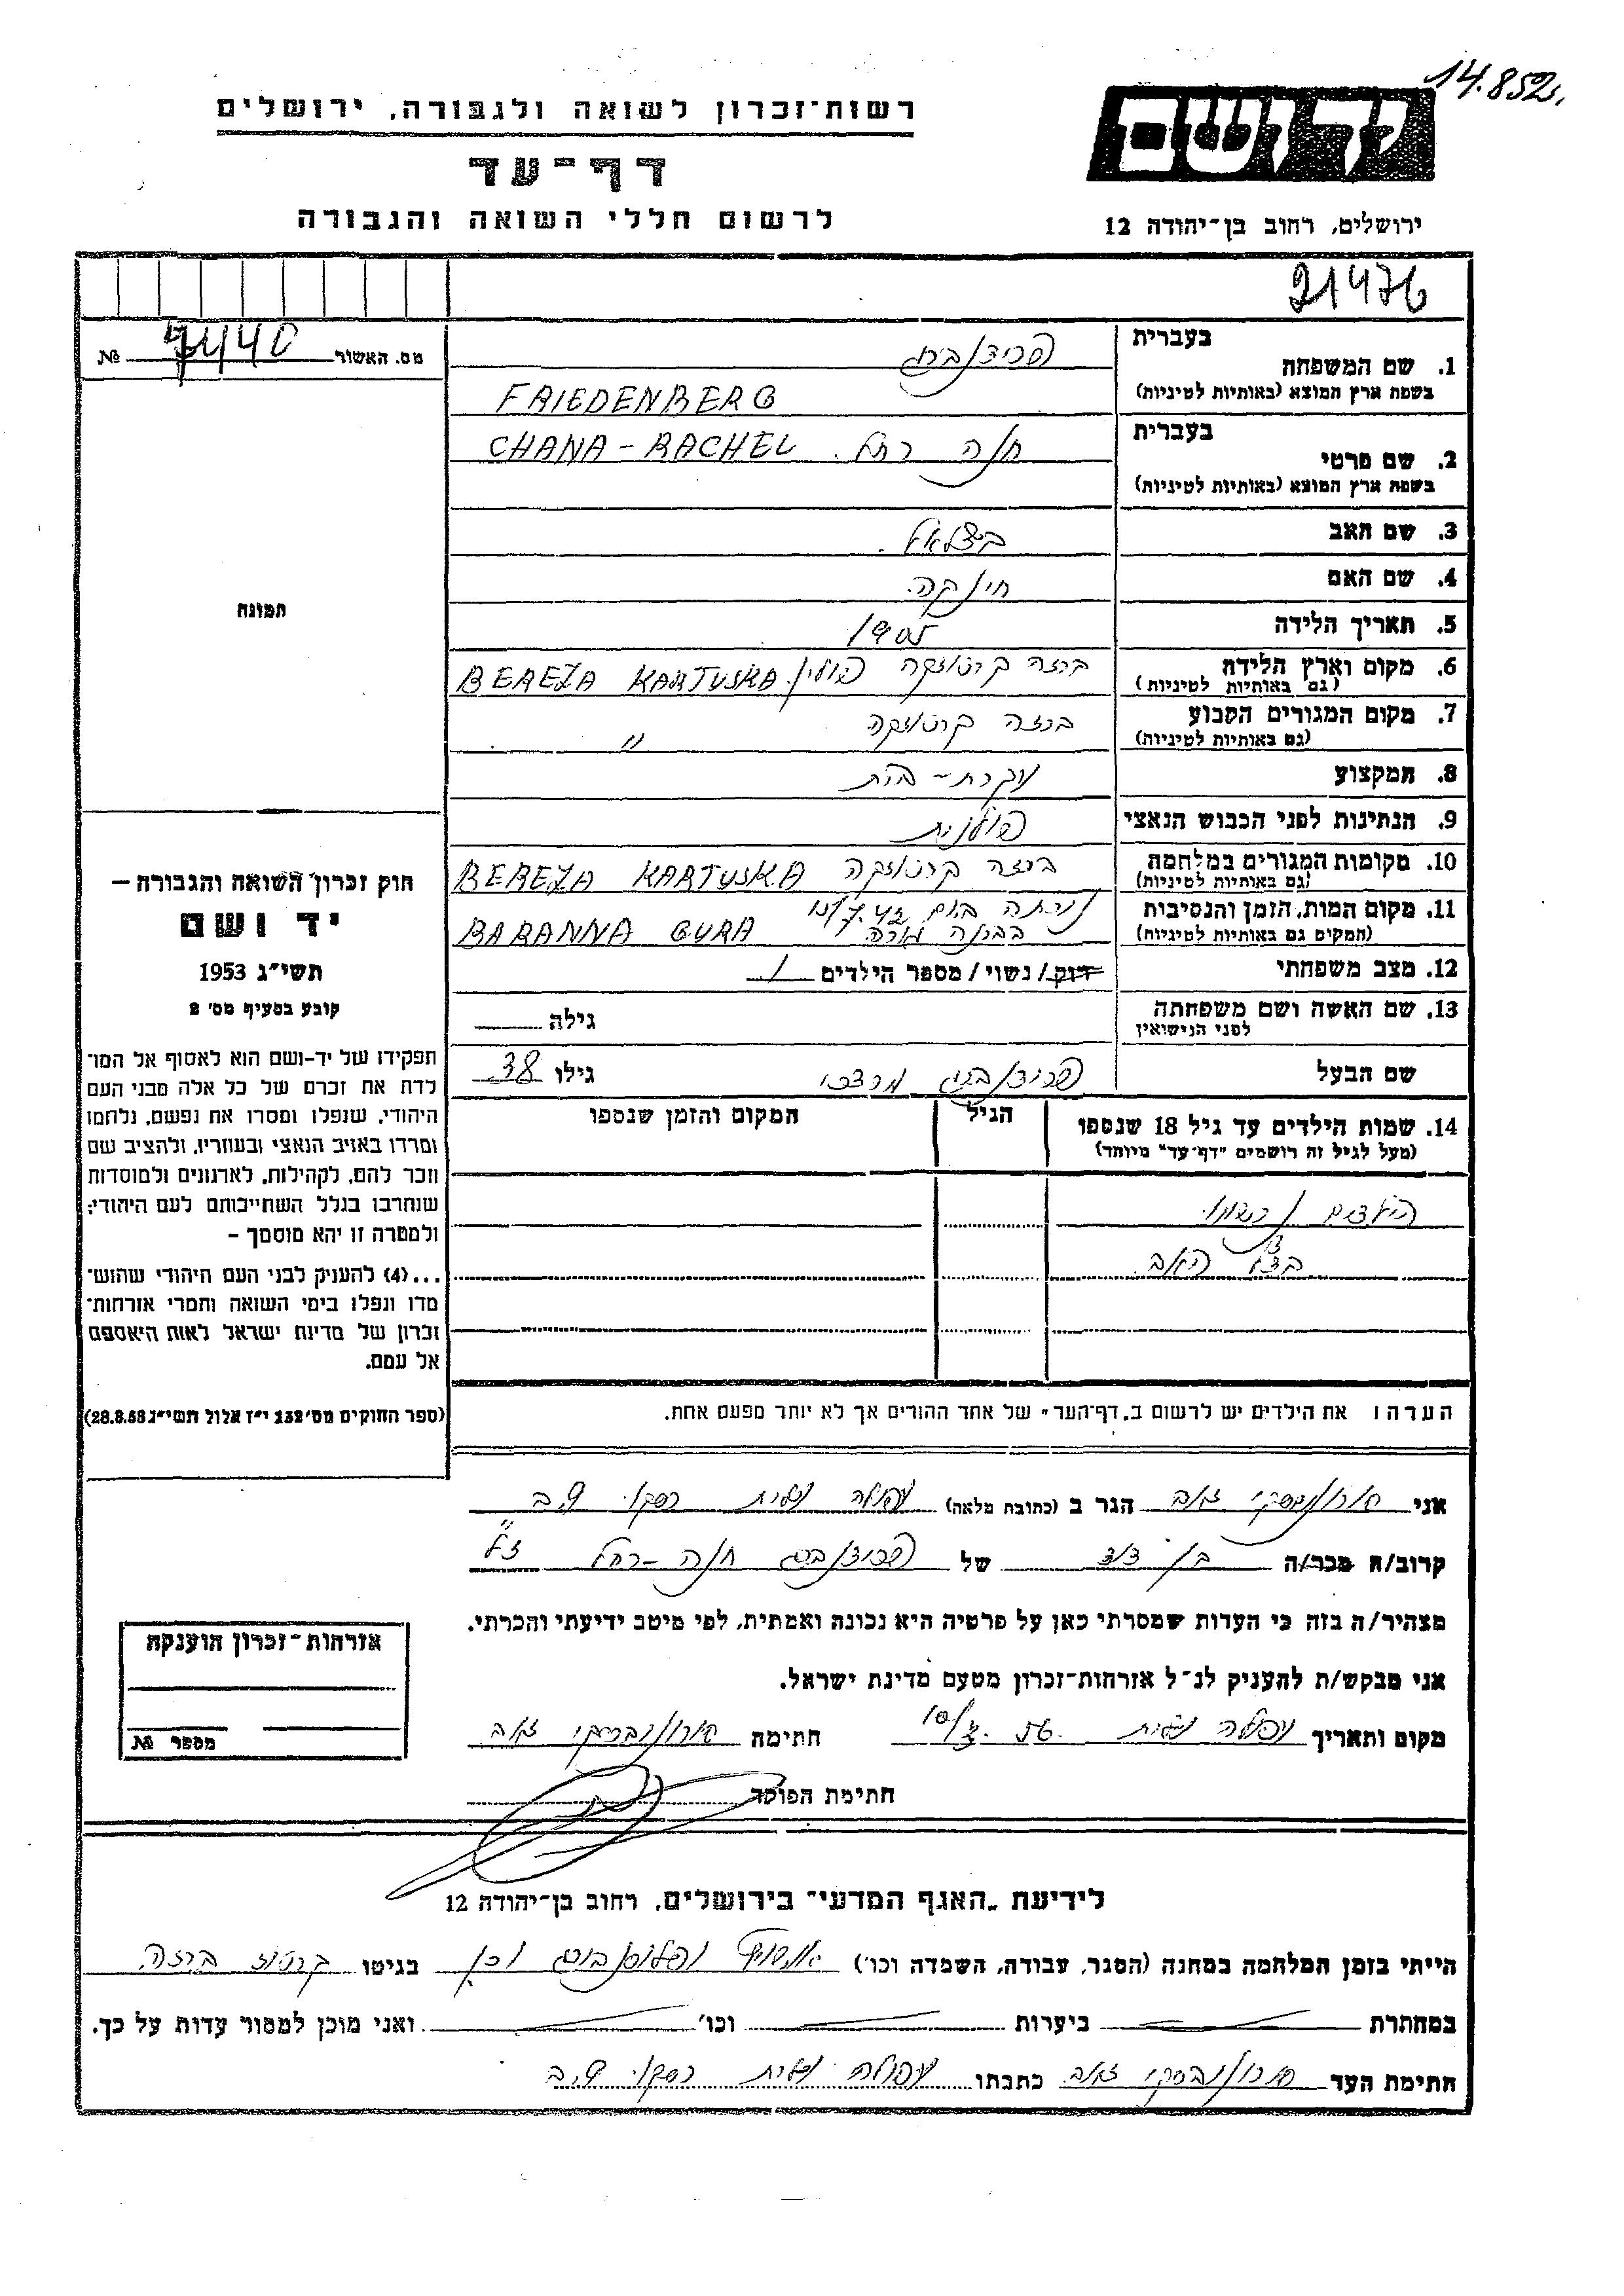 14.852
רשות־זכרון לשואה ולגבורה, ירושלים
יד ושם
דף־עד
לרשום חללי השואה והגבורה
ירושלים, רחוב בן־יהודה 12
21476
מס. האשור 7440 №
בעברית פרידנברג
1. שם המשפחה
בשפת ארץ המוצא (באותיות לטיניות) FRIEDENBERG
בעברית חנה רחל. CHANA-RACHEL
2. שם פרטי
בשפת ארץ המוצא (באותיות לטיניות)
3. שם האב בצלאל.
4. שם האם
5. תאריך הלידה 1905
6. מקום וארץ הלידה ברזה קרטוזקה פולין. BEREZA KARTUSKA
(גם באותיות לטיניות)
7. מקום המגורים הקבוע ברזה קרטוזקה "
(גם באותיות לטיניות)
8. המקצוע עקרת-בית
9. הנתינות לפני הכבוש הנאצי פולנית
10. מקומות המגורים במלחמה ברזה קרטוזקה BEREZA KARTUSKA
(גם באותיות לטיניות)
11. מקום המות, הזמן והנסיבות ביום 15/7.42
(המקום גם באותיות לטיניות) BARANNA GURA
12. מצב משפחתי רוק/נשוי/מספר הילדים 1
13. שם האשה ושם משפחתה גילה
לפני הנישואין
שם הבעל פרידנברג מרדכי גילו 38
14. שמות הילדים עד גיל 18 שנספו הגיל המקום והזמן שנספו
(מעל לגיל זה רושמים "דף־עד" מיוחד)
הילדים נרשמו
בדף האב
הערה: את הילדים יש לרשום ב„דף־העד" של אחד ההורים אך לא יותר מפעם אחת.
תמונה
חוק זכרון השואה והגבורה —
יד ושם
תשי"ג 1953
קובע בסעיף מס' 2
תפקידו של יד-ושם הוא לאסוף אל המו־
לדת את זכרם של כל אלה מבני העם
היהודי, שנפלו ומסרו את נפשם, נלחמו
ומרדו באויב הנאצי ובעוזריו, ולהציב שם
וזכר להם, לקהילות, לארגונים ולמוסדות
שנחרבו בגלל השתייכותם לעם היהודי;
ולמטרה זו יהא מוסמך –
...(4) להעניק לבני העם היהודי שהוש־
מדו ונפלו בימי השואה והמרי אזרחות־
זכרון של מדינת ישראל לאות היאספם
אל עמם.
(ספר החוקים מס' 132 י"ז אלול תשי"ג 28.8.53)
אני זאב הגר ב (כתובת מלאה) עפולה עלית רסקו 9.ב
קרוב/ה מכר/ה בן דוד של פרידנברג חנה-רחל ז"ל
מצהיר/ה בזה כי העדות שמסרתי כאן על פרטיה היא נכונה ואמתית, לפי מיטב ידיעתי והכרתי.
אני מבקש/ת להעניק לנ"ל אזרחות־זכרון מטעם מדינת ישראל.
מקום ותאריך עפולה עלית חתימה זאב
חתימת הפוקד
אזרחות־זכרון הוענקה
מספר №
לידיעת „האגף המדעי" בירושלים, רחוב בן־יהודה 12
הייתי בזמן המלחמה במחנה (הסגר, עבודה, השמדה וכו') בגיטו קרטוז ברזה
במחתרת ביערות וכו' ואני מוכן למסור עדות על כך.
חתימת העד זאב כתבתו עפולה עלית רסקו 9.ב